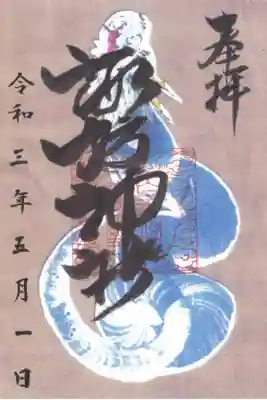 奉拝
神社
令和三年五月一日